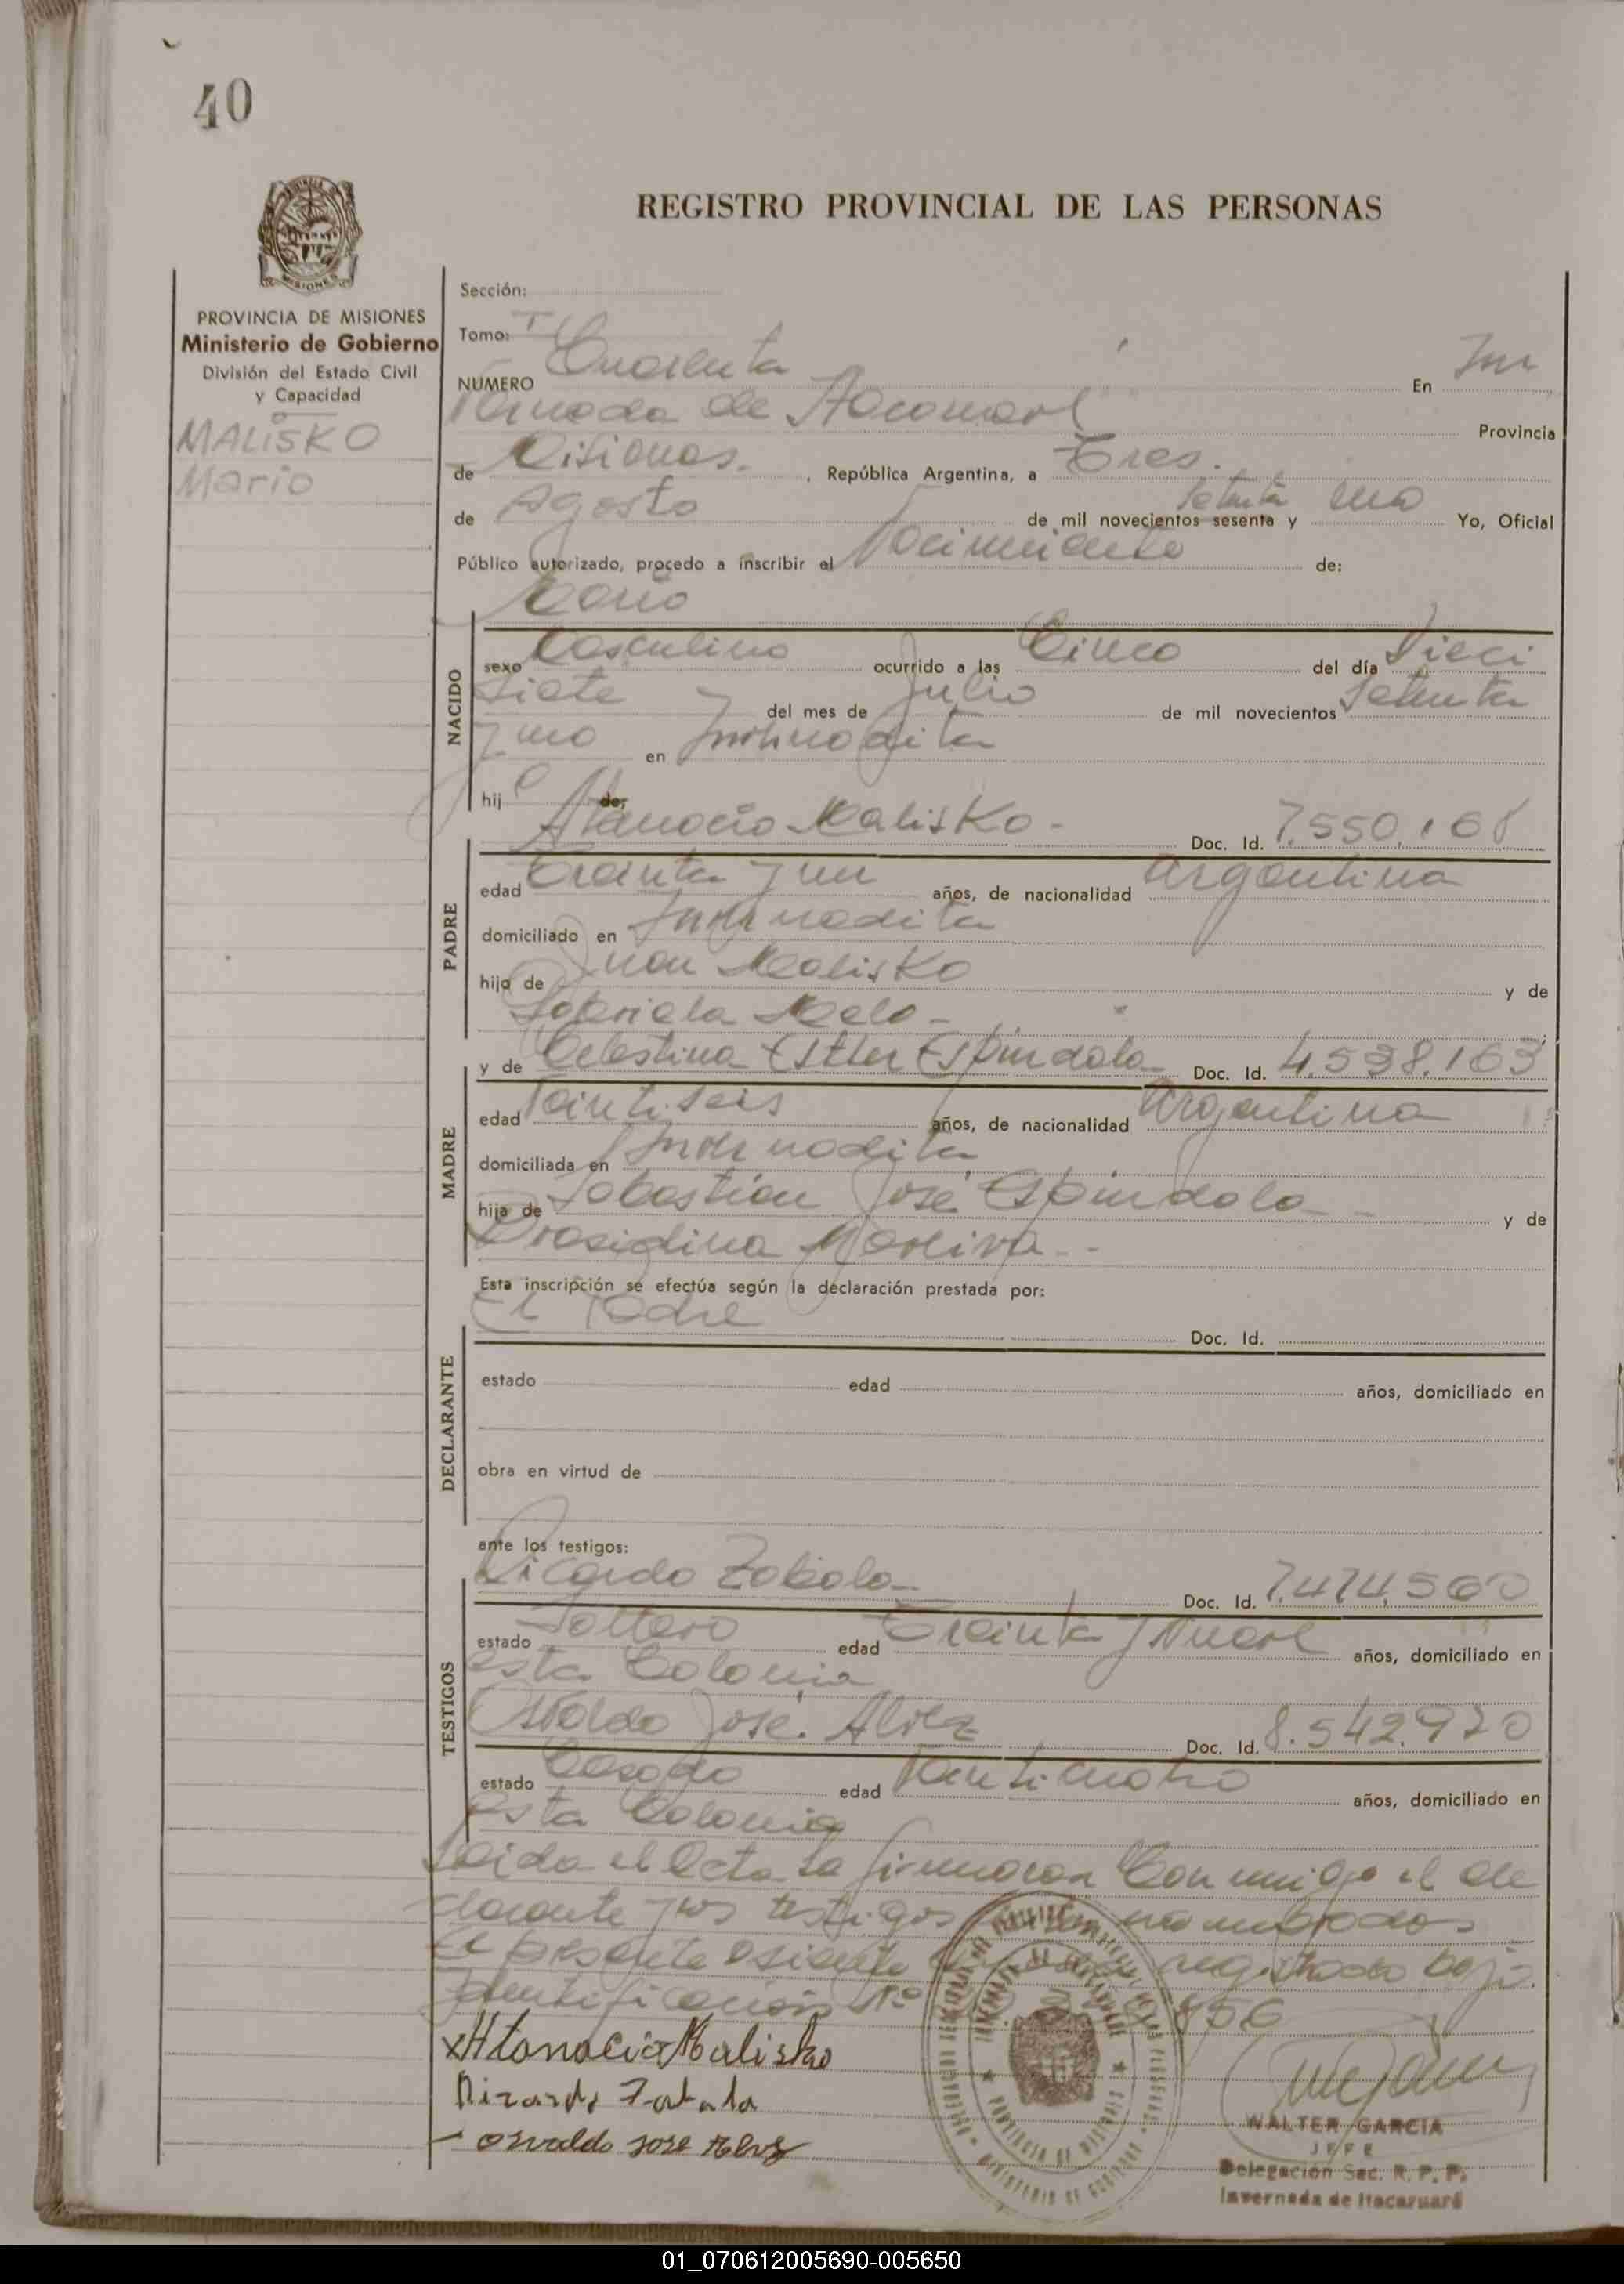 40
REGISTRO PROVINCIAL DE LAS PERSONAS
PROVINCIA DE MISIONES
Ministerio de Gobierno
División del Estado Civil
y Capacidad
MALISKO
Mario
Sección:
Tomo: I
NUMERO Cuarenta En Inv
vernada de Itacaruaré Provincia
de Misiones. , República Argentina, a Tres.
de Agosto de mil novecientos sesenta y setenta uno Yo, Oficial
Público autorizado, procedo a inscribir el Nacimiento de:
Mario
NACIDO
sexo Masculino ocurrido a las Cinco del día Dieci
siete del mes de Julio de mil novecientos setenta
y uno en
hij o de;
Atanacio Malisko - Doc. Id.
PADRE
edad Treinta y un años, de nacionalidad Argentina
domiciliado en
hijo de Juan Malisko y de
Gabriela Melo -
y de Celestina Ester Espindola Doc. Id. 4.538.163
MADRE
edad Veintiseis años, de nacionalidad Argentina
domiciliada en
hija de Sebastian José Espindola y de
Esta inscripción se efectúa según la declaración prestada por:
El Padre
Doc. Id.
DECLARANTE
estado edad años, domiciliado en
obra en virtud de
ante los testigos:
Ricardo Zabala Doc. Id. 7.474.560
TESTIGOS
estado Soltero edad Treinta y Nueve años, domiciliado en
esta Colonia
Osvaldo José. Alvez Doc. Id. 8.542.920
estado Casado edad Veinticuatro años, domiciliado en
esta Colonia
Leida el Acta la firmaron Conmigo el de
clarante y los testigos nombrados
El presente asiento registrado bajo
Identificación Nº 856
x Atanacio Malisko
Ricardo Zabala
Osvaldo Jose Alvez
WALTER GARCIA
JEFE
Delegación Sec. R. P. P.
Invernada de Itacaruaré
01_070612005690-005650